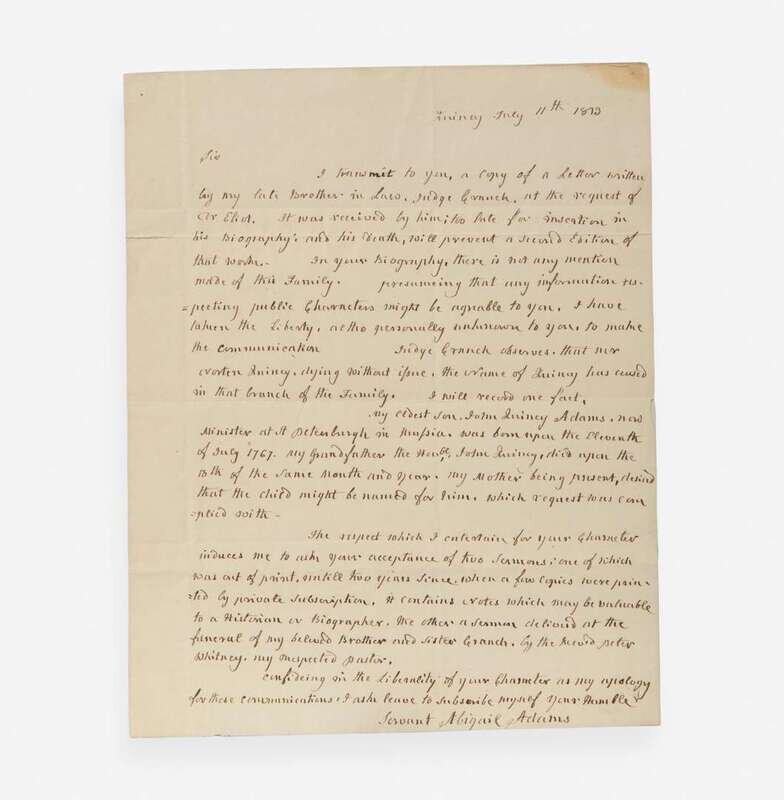 Quincy July 11th 1813
Sir
I transmit to you, a copy of a Letter written
by my late Brother in Law, Judge Cranch, at the request of
Dr Eliot. It was received by him, too late for insertion in
his Biography; and his Death, will prevent a Second Edition of
that work. In your Biography, there is not any mention
made of this Family. presumeing that any information res-
=pecting public Characters might be agreable to you, I have
taken the Liberty, altho personally unknown to you, to make
the communication Judge Cranch observes, that mr
Norten Quincy, dying without issue, the Name of Quincy has ceased
in that branch of the Family. I will record one fact.
my eldest son, John Quincy Adams, now
Minister at St Petersburgh in Russia, was born upon the Eleventh
of July 1767. My Grandfather the Honble John Quincy, died upon the
13th of the Same Month and Year. my Mother being present, desired
that the child might be named for him, which request was com
=plied with-
The respect which I entertain for your Character
induces me to ask your acceptance of two Sermons; one of which
was out of print, untill two years since, when a few copies were prin-
=ted by private Subscription, it contains Notes which may be valuable
to a Historian or Biographer. the other a Sermon deliverd at the
funeral of my beloved Brother and Sister Cranch, by the Revd Peter
Whitney, my respected pastor.
confideing in the Liberality of your Character as my apology
for these communications, I ask leave to Subscribe myself your Humble
Servant Abigail Adams